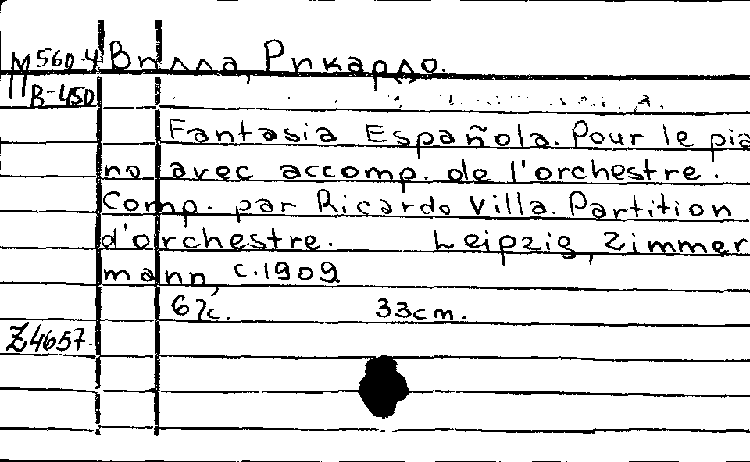 М 560-4 Вилла, Рикардо.
В-450
Fantasia Española. Pour le pia
no avec accomp. de l'orchestre.
Comp. par Ricardo Villa. Partition
d'orchestre. Leipzig, Zimmer
mann, c.1909
67с. 33cm.
Z4657